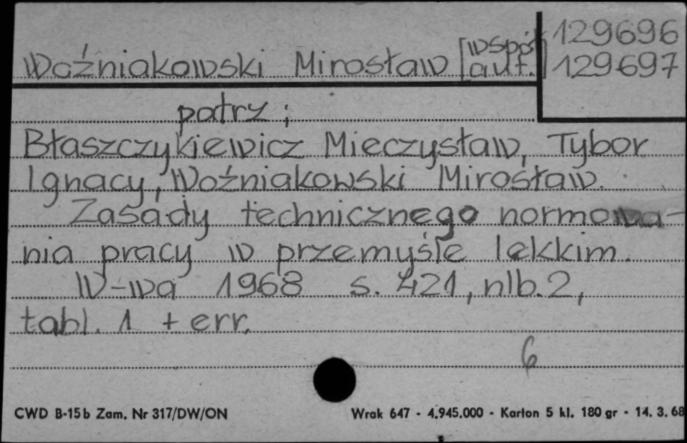 129696
Woźniakowski Mirosław [współaut.] 129697
patrz:
Błaszczykiewicz Mieczysław, Tybor
Ignacy, Woźniakowski Mirosław.
Zasady technicznego normowa-
nia pracy w przemyśle lekkim.
W-wa 1968 s. 421, nlb. 2,
tabl. 1 + err.
6
CWD B-15b Zam. Nr 317/DW/ON Wrak 647 - 4.945.000 - Karton 5 kl. 180 gr - 14. 3. 68